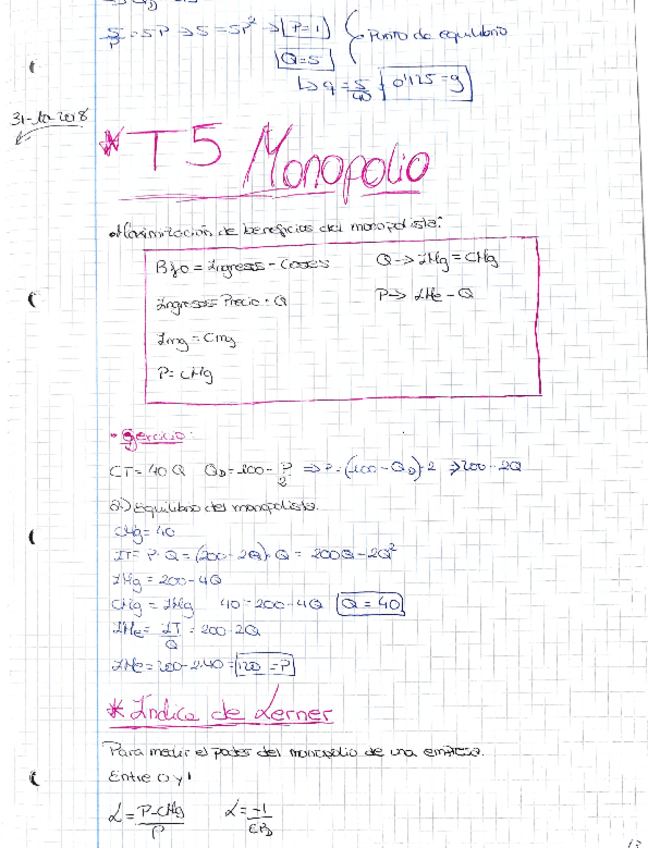 5/P = 5P => 5 = 5P² => P=1 } Punto de equilibrio
Q=5
↳ q = 5/40 0'125=q
2018
* T5 Monopolio
Maximización de beneficios del monopolista:
Bfo = Ingresos - Costes Q -> IMg = CMg
Ingresos = Precio · Q P -> IMe - Q
Img = Cmg
P = CMg
Ejercicio:
CT = 40Q Q_D = 100 - P/2 => P = (100 - Q_D)·2 => 200 - 2Q
a) Equilibrio del monopolista.
CMg = 40
IT = P·Q = (200 - 2Q)·Q = 200Q - 2Q²
IMg = 200 - 4Q
CMg = IMg 40 = 200 - 4Q Q = 40
IMe = IT/Q = 200 - 2Q
IMe = 200 - 2·40 = 120 = P
* Índice de Lerner
Para medir el poder del monopolio de una empresa.
Entre 0 y 1
L = P-CMg/P L = -1/EP_D
13